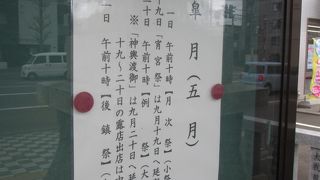 皐月(五月)
一日 午前十時【月次祭】(小祭
十九日「宵宮祭」は九月十九日へ延
二十日 午前十時【例 祭】(大
※「神輿渡御」は九月二十日へ延
十九~二十日の露店出店は
一日 午前十時【後鎮祭】(